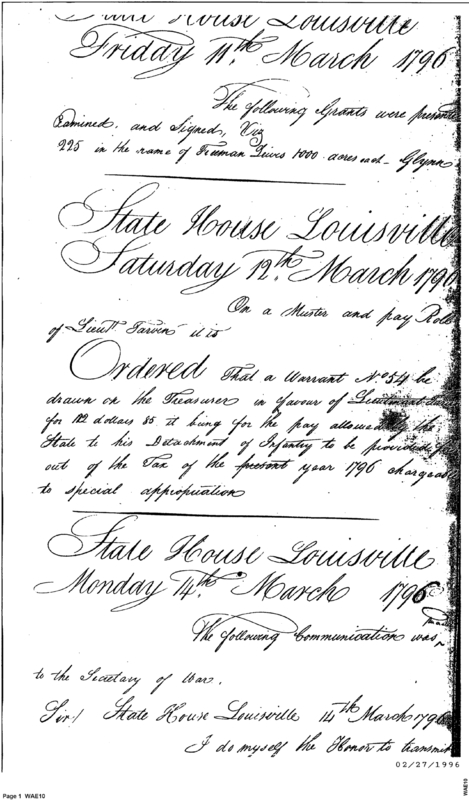 State House Louisville
Friday 11th March 1796
The following Grants were present
Examined, and Signed, Viz
225 in the name of Freeman Lewis 1000 acres each - Glynn
State House Louisville
Saturday 12th March 1796
On a Muster and pay Role
of Lieutt Tarvin it is
Ordered That a Warrant No 54 be
drawn on the Treasurer in favour of Lieutenant
for 112 dollars 35 it being for the pay allowed by the
State to his Detachment of Infantry to be provided for
out of the Tax of the present year 1796 chargeab
to special appropriation
State House Louisville
Monday 14th March 1796
The following Communication was made
to the Secretary of War.
Sir/ State House Louisville 14th March 1796
I do myself the Honor to transmit
02/27/1996
Page 1 WAE10
WAE10